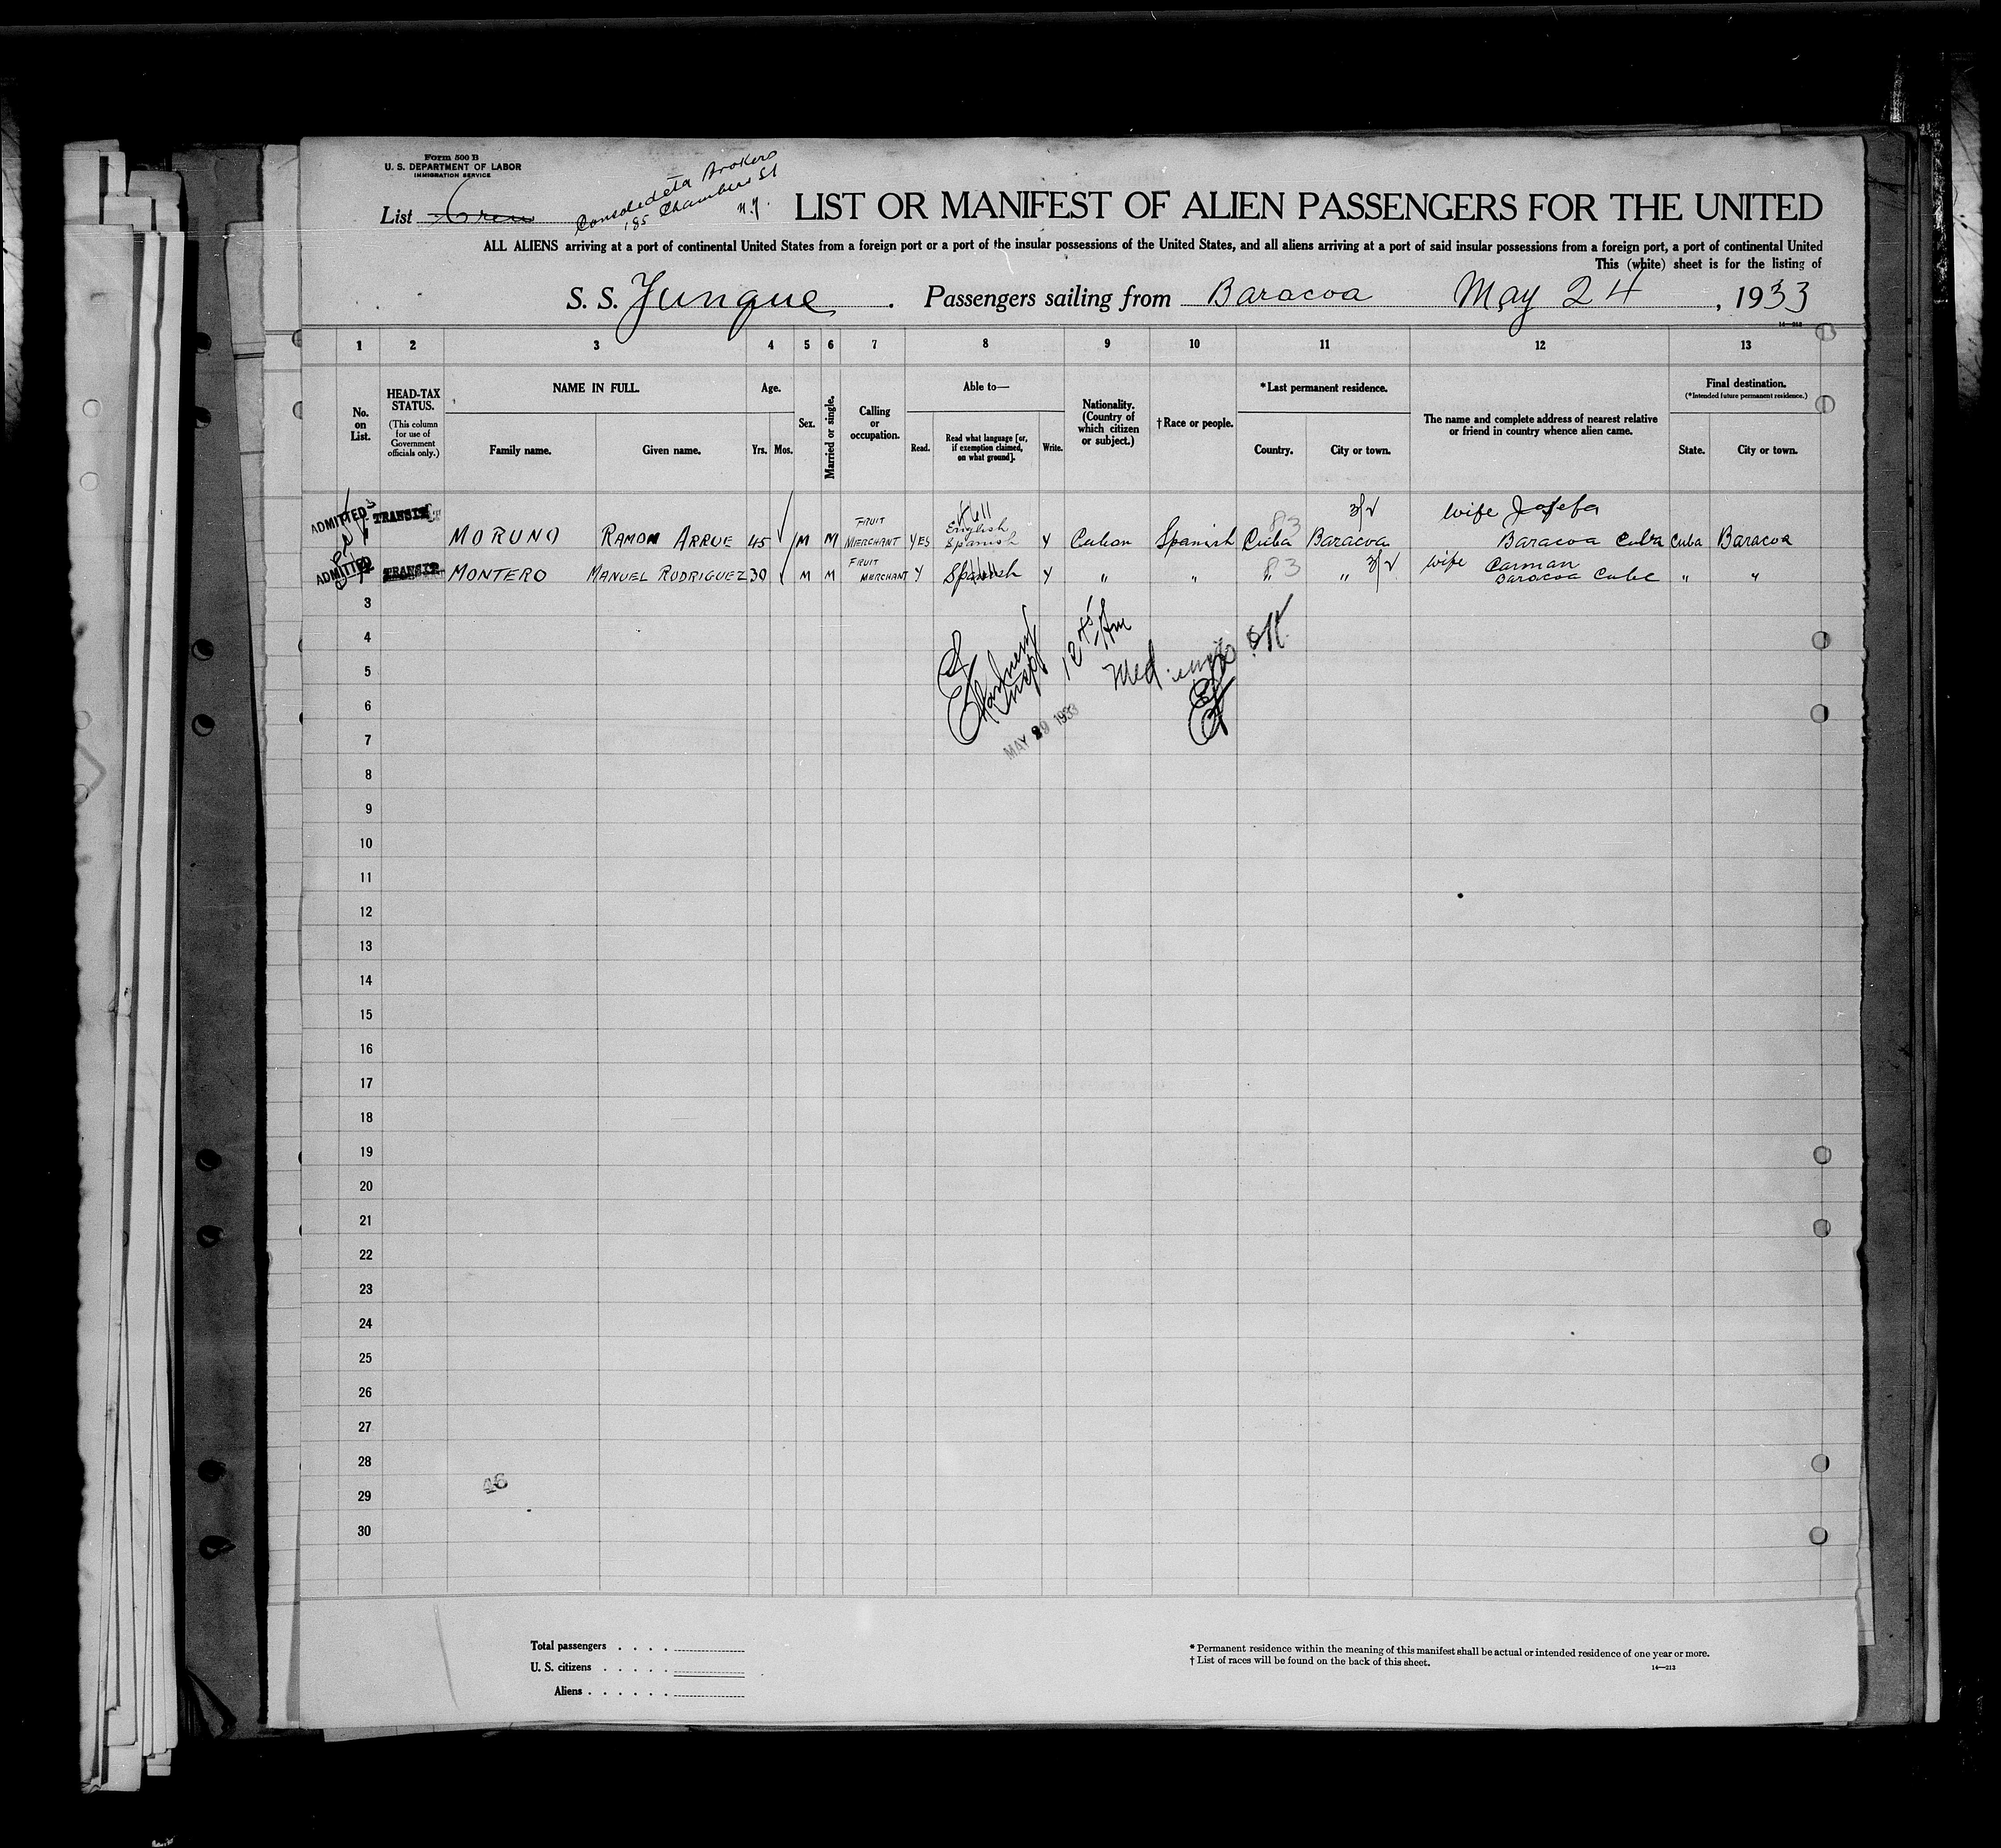 Form 500 B
U. S. DEPARTMENT OF LABOR
IMMIGRATION SERVICE
List
Consoledeta Brokers
185 Chambers St
N.Y.
LIST OR MANIFEST OF ALIEN PASSENGERS FOR THE UNITED
ALL ALIENS arriving at a port of continental United States from a foreign port or a port of the insular possessions of the United States, and all aliens arriving at a port of said insular possessions from a foreign port, a port of continental United
This (white) sheet is for the listing of
S. S. Yunque . Passengers sailing from Baracoa May 24, 1933
14—213
1 2 3 4 5 6 7 8 9 10 11 12 13
No. on List.
HEAD-TAX STATUS.
(This column for use of Government officials only.)
NAME IN FULL.
Family name. Given name.
Age.
Yrs. Mos.
Sex.
Married or single.
Calling or occupation.
Able to—
Read. Read what language [or, if exemption claimed, on what ground]. Write.
Nationality. (Country of which citizen or subject.)
† Race or people.
* Last permanent residence.
Country. City or town.
The name and complete address of nearest relative or friend in country whence alien came.
Final destination.
(*Intended future permanent residence.)
State. City or town.
ADMITTED TRANSIT MORUNO RAMON ARRUE 45 M M FRUIT MERCHANT YES English Spanish Y Cuban Spanish Cuba Baracoa wife Josefa Baracoa Cuba Cuba Baracoa
ADMITTED TRANSIT MONTERO MANUEL RODRIGUEZ 30 M M FRUIT MERCHANT Y Spanish Y " " " " wife Carman Baracoa Cube " "
83
83
3
4
5
6
7
8
9
10
11
12
13
14
15
16
17
18
19
20
21
22
23
24
25
26
27
28
29
30
Insp
Med
MAY 29 1933
46
Total passengers . . . .
U. S. citizens . . . . .
Aliens . . . . . .
* Permanent residence within the meaning of this manifest shall be actual or intended residence of one year or more.
† List of races will be found on the back of this sheet.
14—213